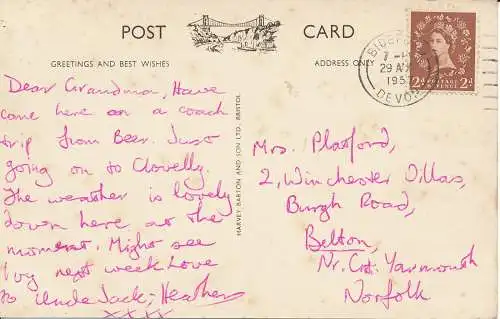 POST CARD
GREETINGS AND BEST WISHES
ADDRESS ONLY
Dear Grandma, Have
come here on a coach
trip from Beer. Just
going on to Clovelly.
The weather is lovely
down here at the
moment. Might see
you next week Love
to Uncle Jack; Heather
xxxx
HARVEY BARTON AND SON LTD. BRISTOL
DEVON
2d 2d
POSTAGE
REVENUE
Mrs. Platford,
2, Winchester Villas,
Burgh Road,
Belton,
Nr. Gt. Yarmouth
Norfolk